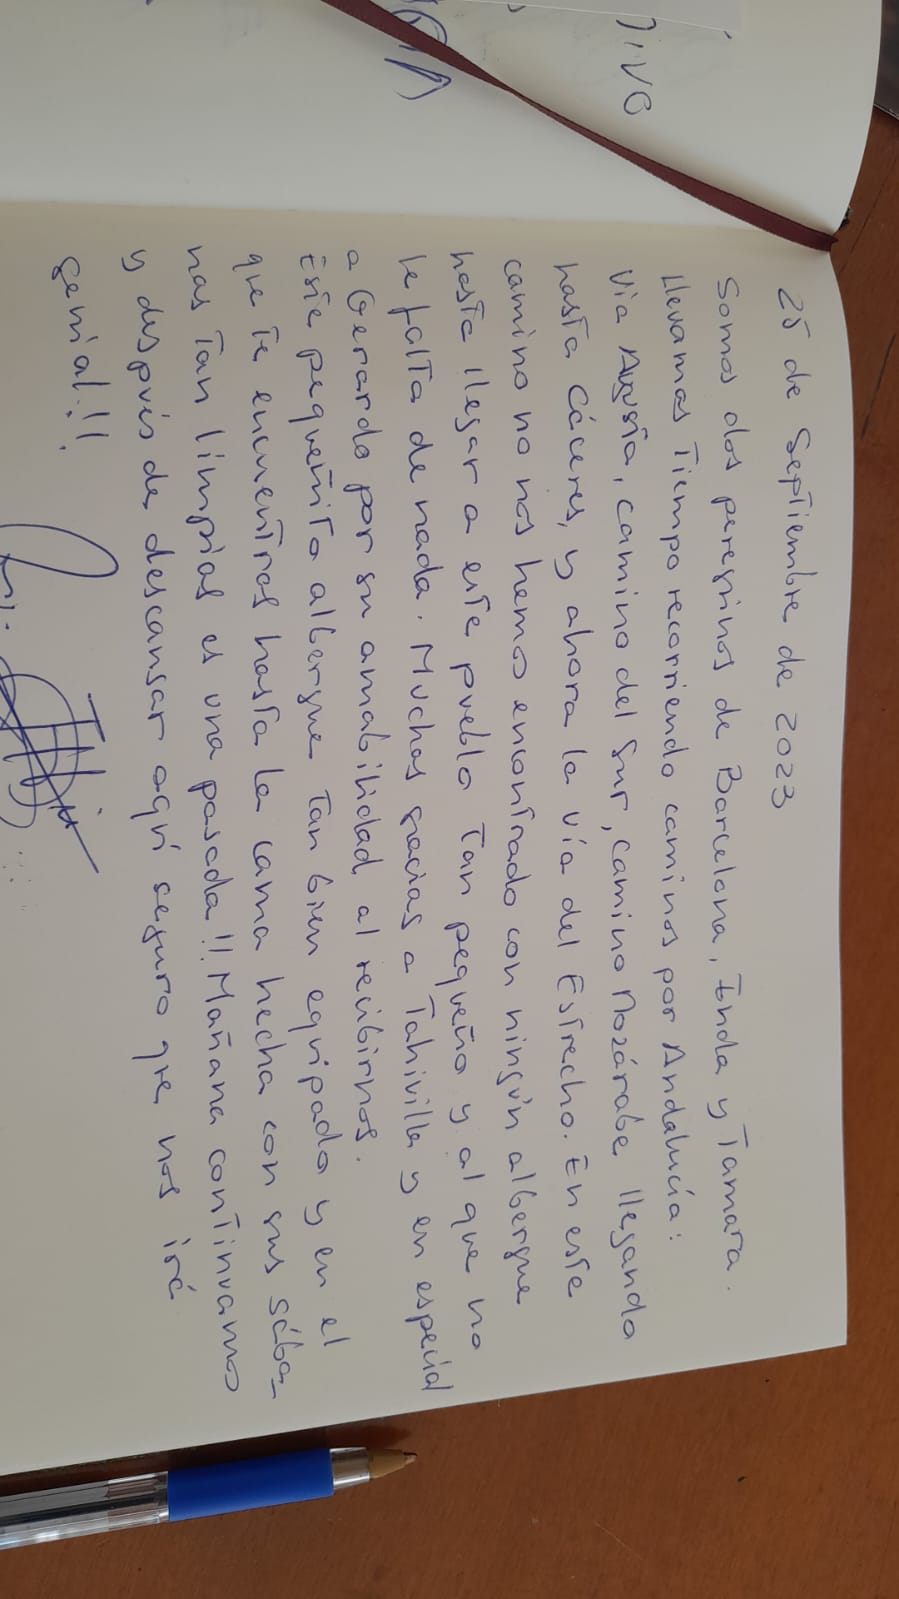 25 de Septiembre de 2023
Somos dos peregrinos de Barcelona, Enda y Tamara.
Llevamos Tiempo recorriendo caminos por Andalucía:
Via Augusta, camino del Sur, camino Mozárabe llegando
hasta Cáceres, y ahora la vía del Estrecho. En este
camino no nos hemos encontrado con ningún albergue
hasta llegar a este pueblo Tan pequeño y al que no
le falta de nada. Muchas gracias a Tahivilla y en especial
a Gerardo por su amabilidad al recibirnos.
Este pequeñito albergue Tan bien equipado y en el
que te encuentras hasta la cama hecha con sus sába-
nas Tan limpias es una pasada!! Mañana continuamos
y después de descansar aquí seguro que nos irá
genial!!